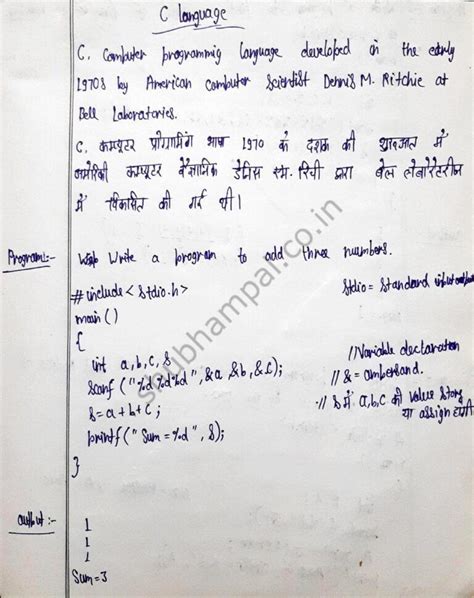 C Language
C, Computer programmig language developed in the early
1970s by American computer scientist Dennis M. Ritchie at
Bell Laboratories.
C, कम्प्यूटर प्रोग्रामिंग भाषा 1970 के दशक की शुरुआत में
अमेरिकी कम्प्यूटर वैज्ञानिक डेनिस एम. रिची द्वारा बेल लेबोरेटरीज
में विकसित की गई थी।
Program:- Write a program to add three numbers.
#include<stdio.h> Stdio = Standard input output
main()
{
int a,b,c,s //Variable declaration
scanf ("%d%d%d",&a,&b,&c); // & = ambersand.
s=a+b+c; // S में a,b,c की value store
printf("Sum=%d",s); या assign होगी
}
output:- 1
1
1
Sum=3
shubhampal.co.in